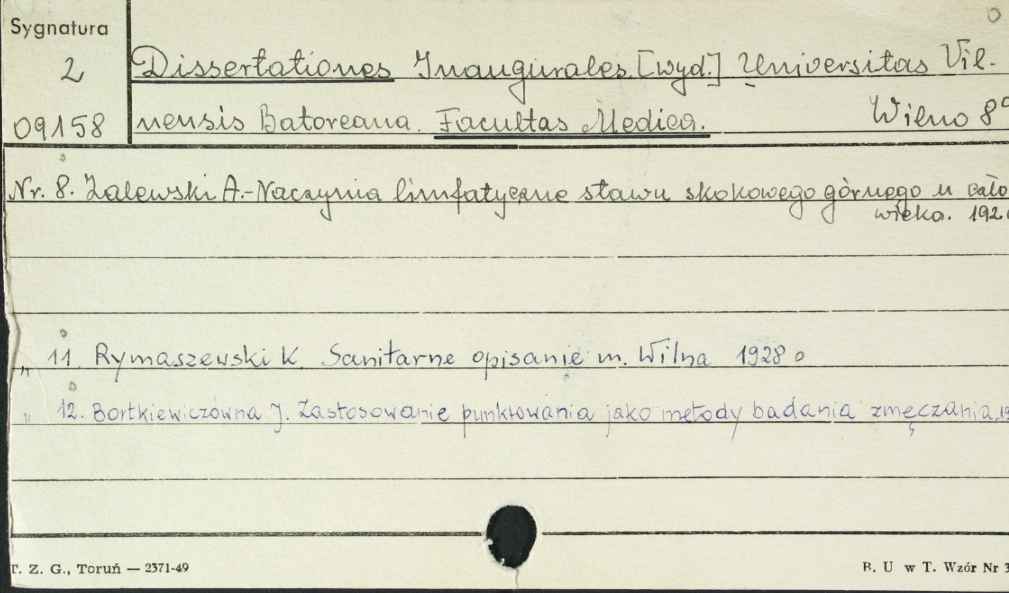 Sygnatura
2
09158
Dissertationes Inaugurales [wyd.] Universitas Vil-
nensis Batoreana. Facultas Medica. Wilno 8°
Nr. 8. Zalewski A. - Naczynia limfatyczne stawu skokowego górnego u czło
wieka. 192
„ 11. Rymaszewski K. Sanitarne opisanie m. Wilna 1928
„ 12. Bortkiewiczówna J. Zastosowanie punktowania jako metody badania zmęczania, 19
T. Z. G., Toruń — 2371-49
B. U w T. Wzór Nr 3